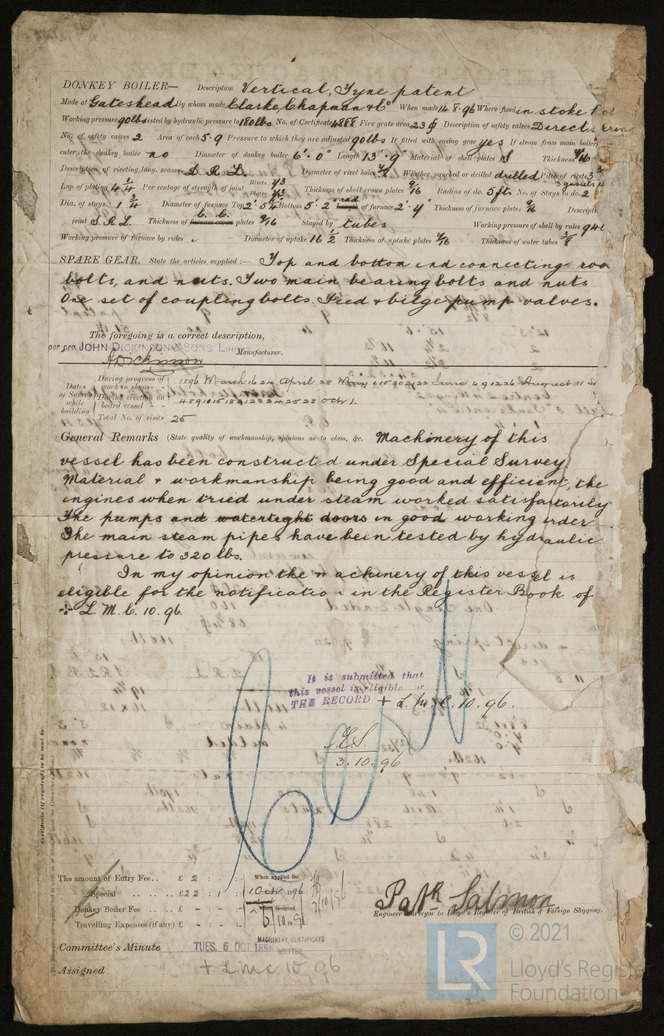 DONKEY BOILER— Description Vertical, Tyne patent
Made at Gateshead By whom made Clarke, Chapman & Co When made 14.8.96 Where fixed in stoke
Working pressure 90lbs tested by hydraulic pressure to 180lbs No. of Certificate 4888 Fire grate area 23 Description of safety valves Direct
No. of safety valves 2 Area of each 5.9 Pressure to which they are adjusted 90lbs If fitted with easing gear yes If steam from main boilers
enter the donkey boiler no Diameter of donkey boiler 6'.0" Length 13'.9" Material of shell plates S Thickness 7/16
Description of riveting long. seams D.R.L. Diameter of rivet holes Whether punched or drilled drilled Pitch of rivets
Lap of plating 4 1/4 Per centage of strength of joint Rivets Plates Thickness of shell crown plates 9/16 Radius of do. 5ft. No. of Stays to do. 2
Dia. of stays. 1 3/4 Diameter of furnace Top Bottom 5'.2 Length of furnace 2'.4" Thickness of furnace plates 9/16 Descript
joint S.R.L. Thickness of furnace crown plates 9/16 Stayed by tubes Working pressure of shell by rules 94
Working pressure of furnace by rules Diameter of uptake 16 1/2 Thickness of uptake plates 7/16 Thickness of water tubes 3/8
SPARE GEAR. State the articles supplied:— Top and bottom end connecting rod
bolts, and nuts. Two main bearing bolts and nuts
One set of coupling bolts. Feed & bilge pump valves.
The foregoing is a correct description,
per pro. JOHN DICKINSON & SONS, LIMITED Manufacturer.
A Dickinson
Dates of Survey while building
During progress of work in shops - - 1896 March 16 24 April 28 May June 4 9 12 26 August 31
During erection on board vessel - - - Oct 1.
Total No. of visits 25
General Remarks (State quality of workmanship, opinions as to class, &c. Machinery of this
vessel has been constructed under Special Survey
Material & workmanship being good and efficient, the
engines when tried under steam worked satisfactorily
The pumps and watertight doors in good working order
The main steam pipes have been tested by hydraulic
pressure to 320 lbs.
In my opinion the machinery of this vessel is
eligible for the notification in the Register Book of
+ L.M.C. 10.96
It is submitted that
this vessel is eligible
THE RECORD + L.M.C. 10.96.
3.10.96
Certificate (if required) to be sent to
The amount of Entry Fee.. £ 2 : :
Special .. .. £ 22 : 1 :
Donkey Boiler Fee .. .. £ - : :
Travelling Expenses (if any) £ - : :
When applied for,
1 Oct 1896
When received,
6/10/96
Engineer Surveyor to Lloyd's Register of British & Foreign Shipping.
Salmon
Committee's Minute TUES. 6 OCT 1896
MACHINERY CERTIFICATE
WRITTEN
Assigned + LMC 10,96
© 2021
LR
Lloyd's Register
Foundation